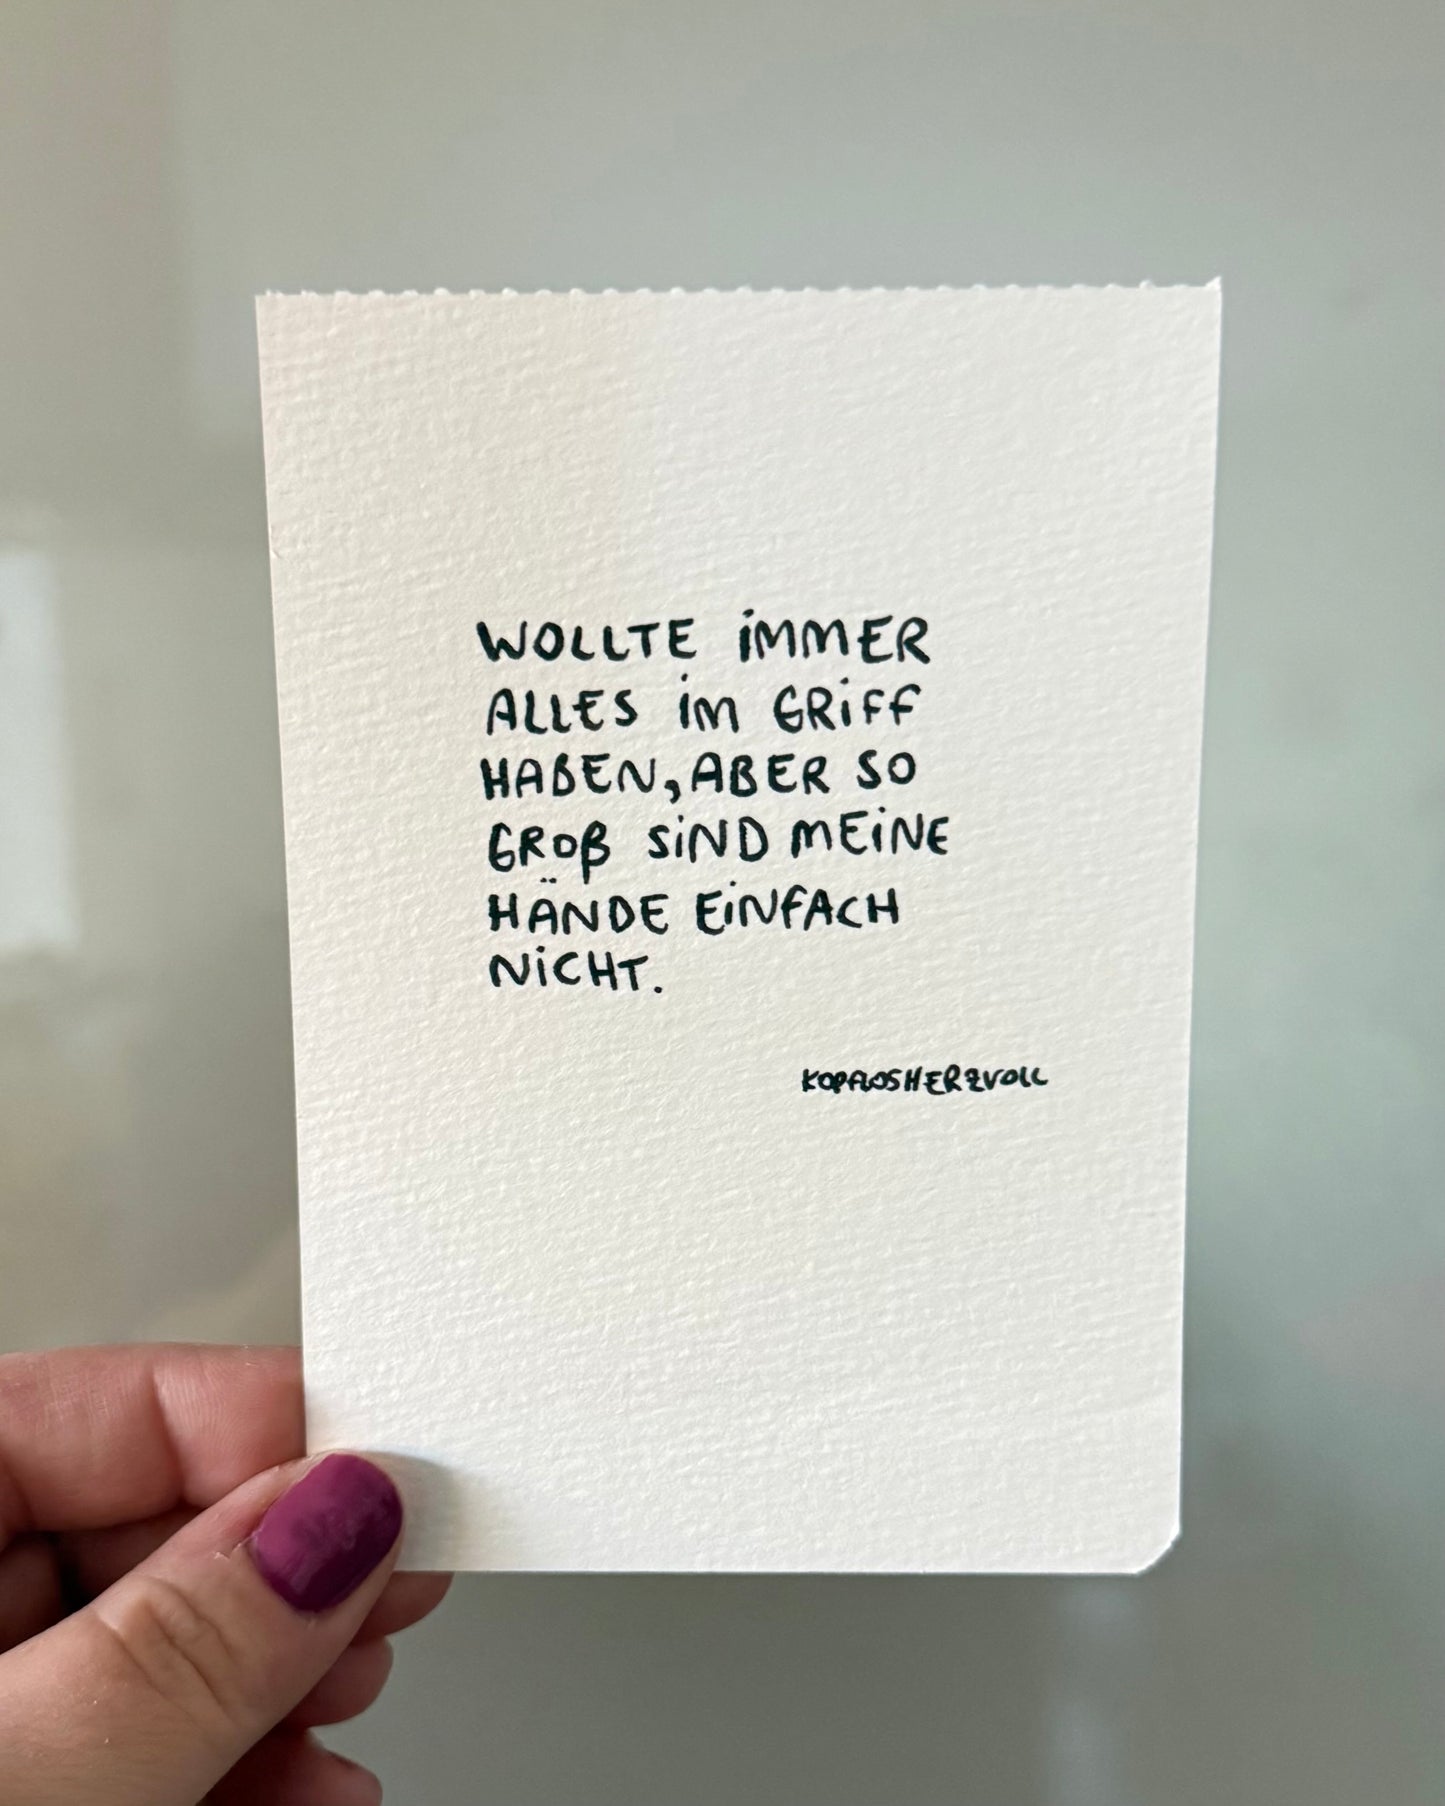 WOLLTE iMMER
ALLES iM GRiFF
HABEN, ABER SO
GROß SiND MEiNE
HÄNDE EiNFACH
NiCHT.
KOPFLOSHERZVOLL